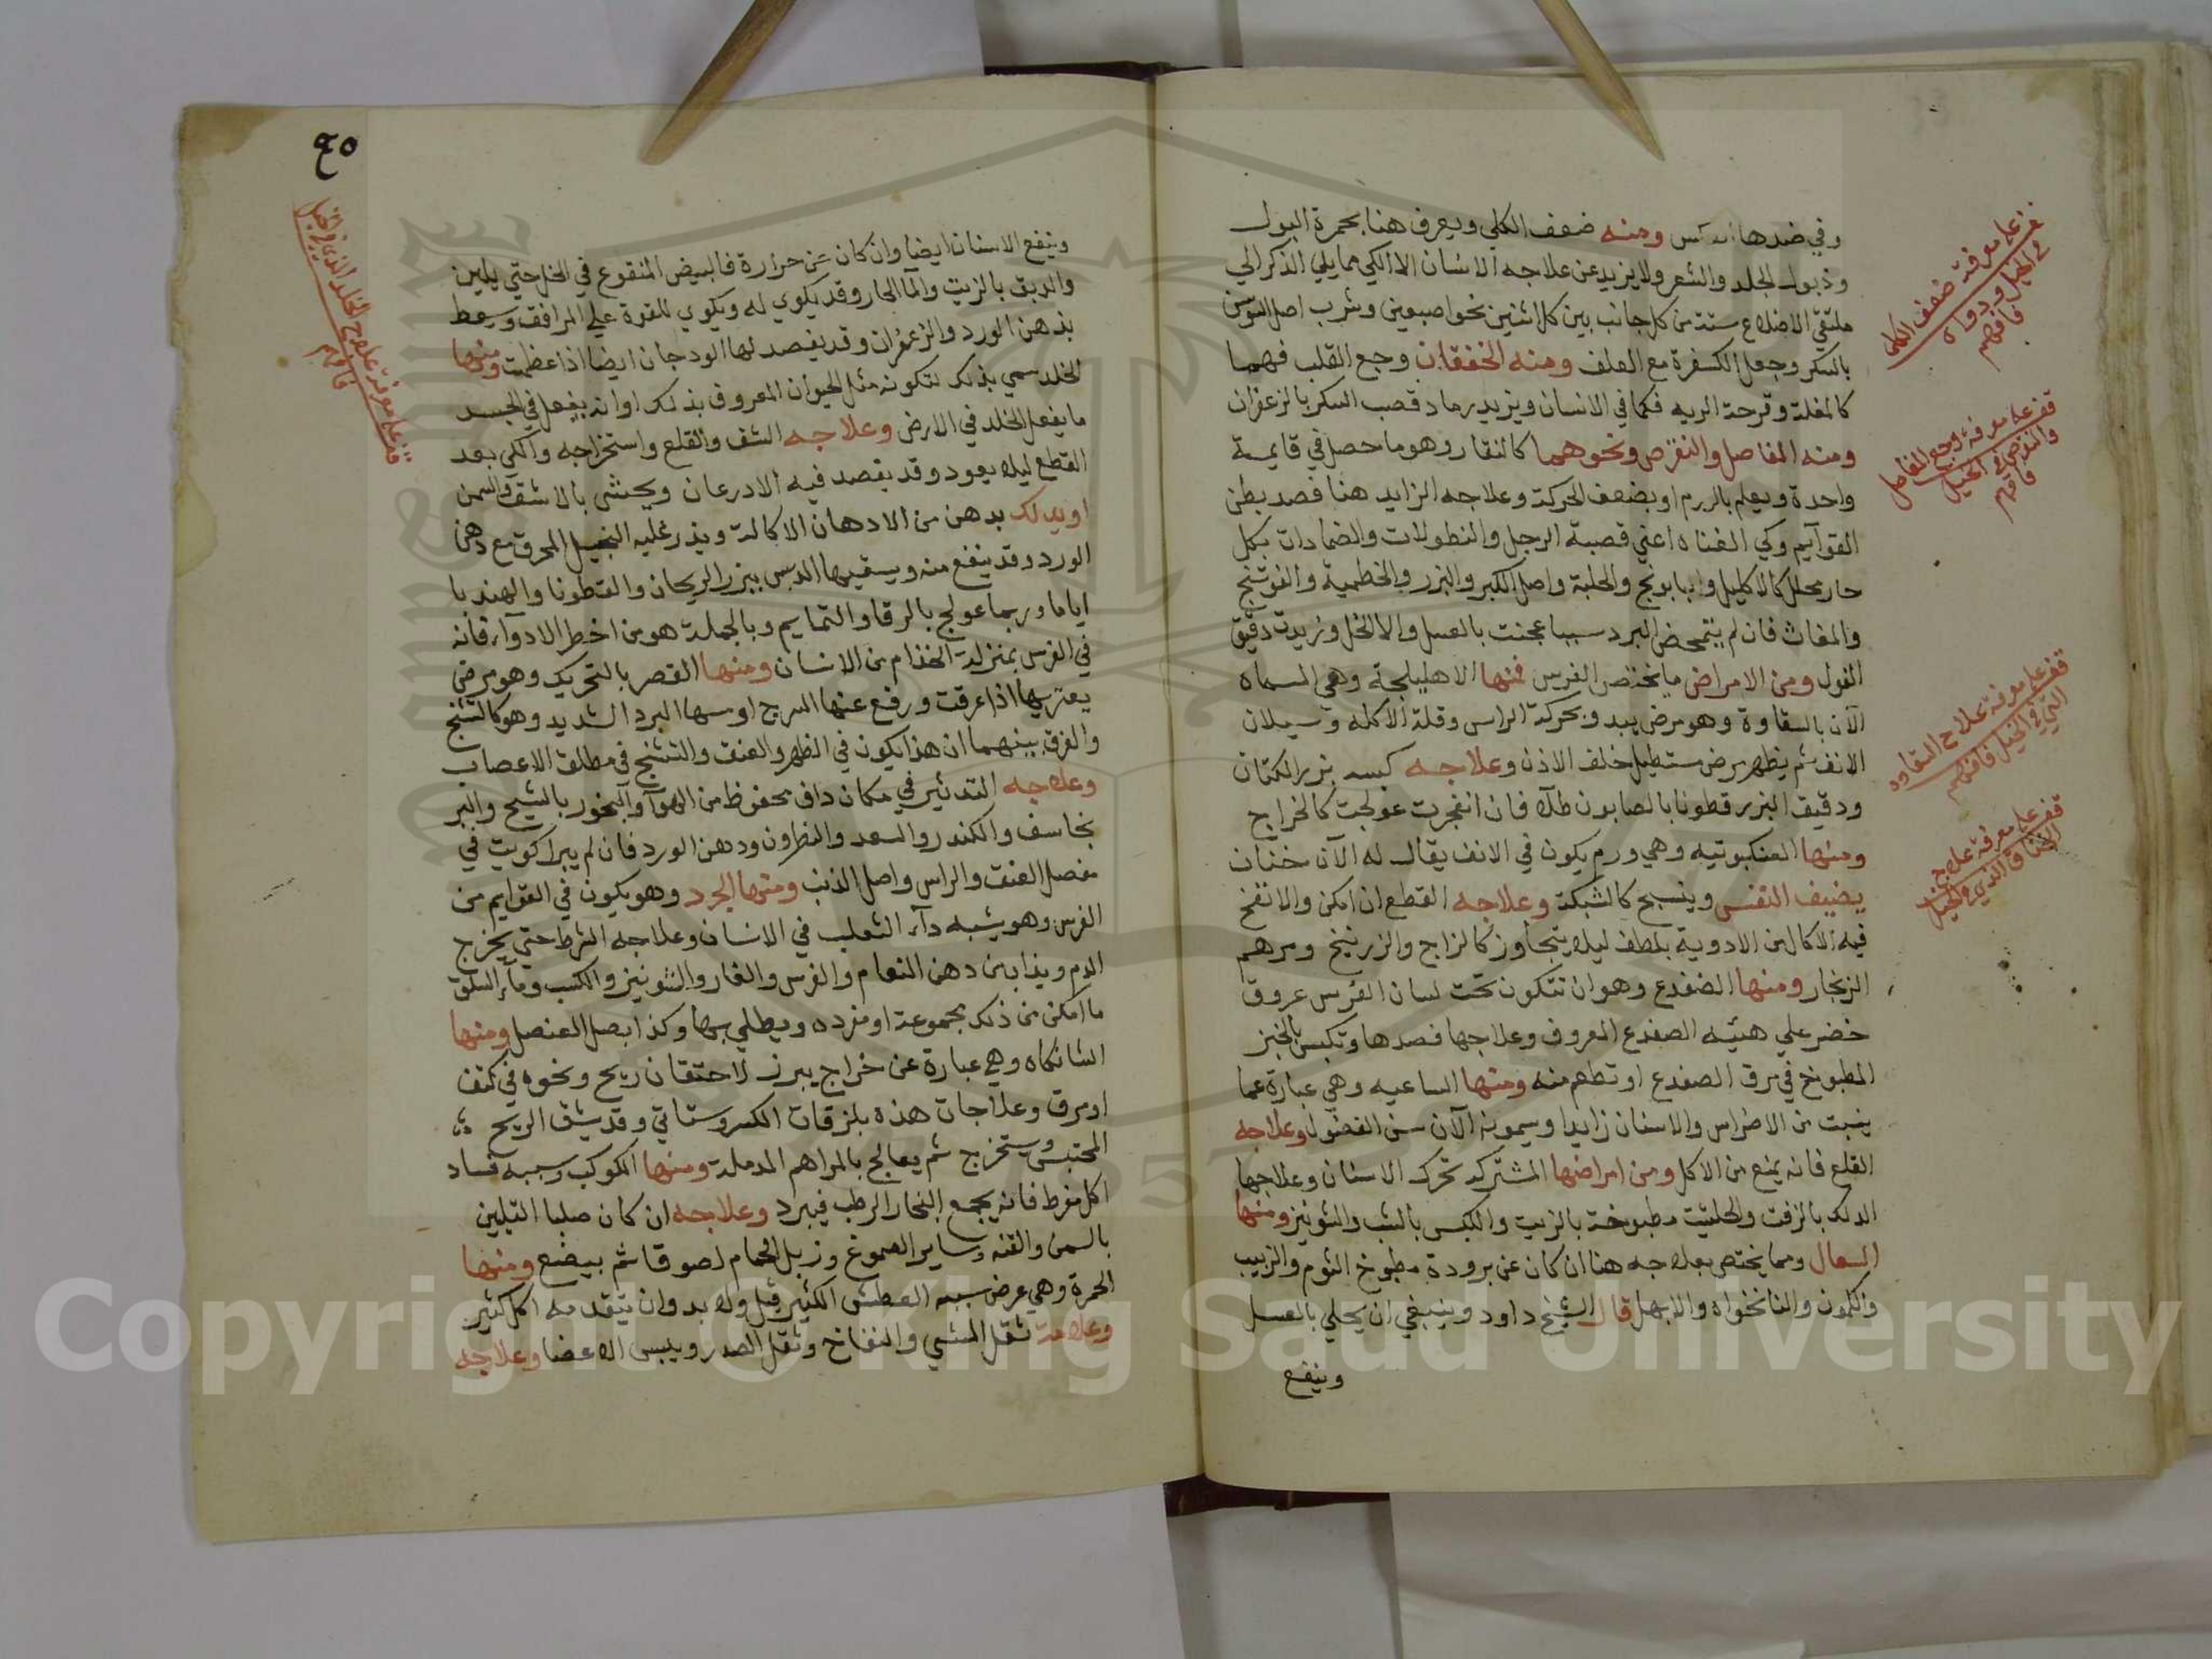 وفي ضدها ومنه ضعف الكلي ويعرف هنا بحمرة البول
وذبول الجلد والشعر ولا يزيد عن علاجه الانسان الا الكي مما يلي الذكر الي
ملتقي الاضلاع ستة من كل جانب بين كل اثنين نحو اصبعين وشرب اصل السوسن
بالسكر وجعل الكسفرة مع العلف ومنه الخفقان وجع القلب فهما
كالمغلة وقرحة الريه فكما في الانسان ويزيد رماد قصب السكر بالزعفران
ومنه المفاصل والنقرص ونحوهما كالنقار وهو ما حصل في قايمة
واحدة ويعلم بالورم او بضعف الحركة وعلاجه الزايد هنا فصد بطن
القوآيم وكي القناه اعني قصبة الرجل والنطولات والضمادات بكل
حار محلل كالاكليل والبابونج والحلبة واصل الكبر والبزر والخطمية والفوتنج
والمغاث فان لم يتمحض البرد سببا عجنت بالعسل والا الخل وزيدت دقيق
الفول ومن الامراض ما يختص الفرس فمنها الاهليلجة وهي المسماه
الآن بالسقاوة وهو مرض يبدو بحركة الراس وقلة الاكل وسيلان
الانف ثم يظهر مرض مستطيل خلف الاذن وعلاجه كبسه بزر الكتان
ودقيق البزر قطونا بالصابون طلآ فان انفجرت عولجت كالخراج
ومنها العنكبوتيه وهي ورم يكون في الانف يقال له الآن خنان
يضيف النفس وينسج كالشبكة وعلاجه القطع ان امكن والا نفخ
فيه الاكال من الادوية بلطف ليلا يتجاوز كالزاج والزرنيخ ومرهم
الزنجار ومنها الضفدع وهو ان تتكون تحت لسان الفرس عروق
خضر علي هيئه الضفدع المعروف وعلاجها فصدها وتكبس بالخبز
المطبوخ في مرق الضفدع او تطعم منه ومنها الساعيه وهي عبارة عما
ينبت من الاضراس والاسنان زايدا ويسمونه الآن سن الفضول وعلاجه
القلع فانه يمنع من الاكل ومن امراضها المشتركه تحرك الاسنان وعلاجها
الدلك بالزفت والحلتيت مطبوخة بالزيت والكبس بالشب والشونيز ومنها
السعال ومما يختص بعلاجه هنا ان كان عن برودة مطبوخ الثوم والزبيب
والكمون والنانخواه والابهل قال الشيخ داود وينبغي ان يحلي بالعسل
وينفع
قف علي معرفة ضعف الكلي
في الخيل ودواه
فافهم
قف علي معرفة وجع المفاصل
والنقرص في الخيل
فافهم
قف علي معرفة علاج السقاوه
التي في الخيل فافهم
قف علي معرفة علاج
الخناق الذي في الخيل
٩٥
وينفع الاسنان ايضا وان كان عن حرارة فالبيض المنقوع في الخل حتي يلين
والدبق بالزيت والمآ الحار وقد يكوي له ويكوي للقوة علي المرافق ويسعط
بدهن الورد والزعفران وقد يفصد لها الودجان ايضا اذا عظمت ومنها
الخلد سمي بذلك لتكونه مثل الحيوان المعروف بذلك او انه يفعل في الجسد
ما يفعل الخلد في الارض وعلاجه الشف والقلع واستخراجه والكي بعد
القطع ليلا يعود وقد يفصد فيه الادرعان ويحشي بالاشق والسمن
او يدلك بدهن من الادهان الاكالة ويذر عليه المحرق مع دهن
الورد وقد ينفع منه ويسقيها الدبس ببزر الريحان والقطونا والهندبا
اياما وربما عولج بالرقا والتمايم وبالجملة هو من اخطر الادوآء فانه
في الفرس بمنزلة الجذام من الانسان ومنها القصر بالتحريك وهو مرض
يعتريها اذا عرقت ورفع عنها السرج او مسها البرد الشديد وهو كالتشنج
والفرق بينهما ان هذا يكون في الظهر والعنق والتشنج في مطلق الاعصاب
وعلاجه التدثير في مكان داف محفوظ من الهوآ والبخور بالشيح والبر
نجاسف والكندر والسعد والنطرون ودهن الورد فان لم يبرا كويت في
مفصل العنق والراس واصل الذنب ومنها الجرد وهو يكون في القوايم من
الفرس وهو يشبه دآء الثعلب في الانسان وعلاجه الشرط حتي يخرج
الدم ويذاب من دهن النعام والفرس والغار والشونيز والكسب ومآء السلق
ما امكن من ذلك مجموعة او مفرده ويطلي بها وكذا بصل العنصل ومنها
الشانكاه وهي عبارة عن خراج يبرز لاحتقان ريح ونحوه في كتف
او مرق وعلاجات هذه بلزقات الكسر وستاتي وقد يشق الريح
المحتبس ويستخرج ثم يعالج بالمراهم المدملة ومنها الكوكب وسببه فساد
اكل مفرط فانه يجمع البخار الرطب فيبرد وعلاجه ان كان صلبا التليين
بالسمن والقنه وساير الصموغ وزبل الحمام لصوقا ثم يبضع ومنها
الحمرة وهي عرض سببه العطش الكثير قبل ولا بد وان يتقدمه اكل كثير
وعلامة ثقل المشي والنفاخ وثقل الصدر ويبس الاعضا وعلاجه
قف علي معرفة علاج الخلد الذي في الخيل
فافهم
Copyright © King Saud University
1957